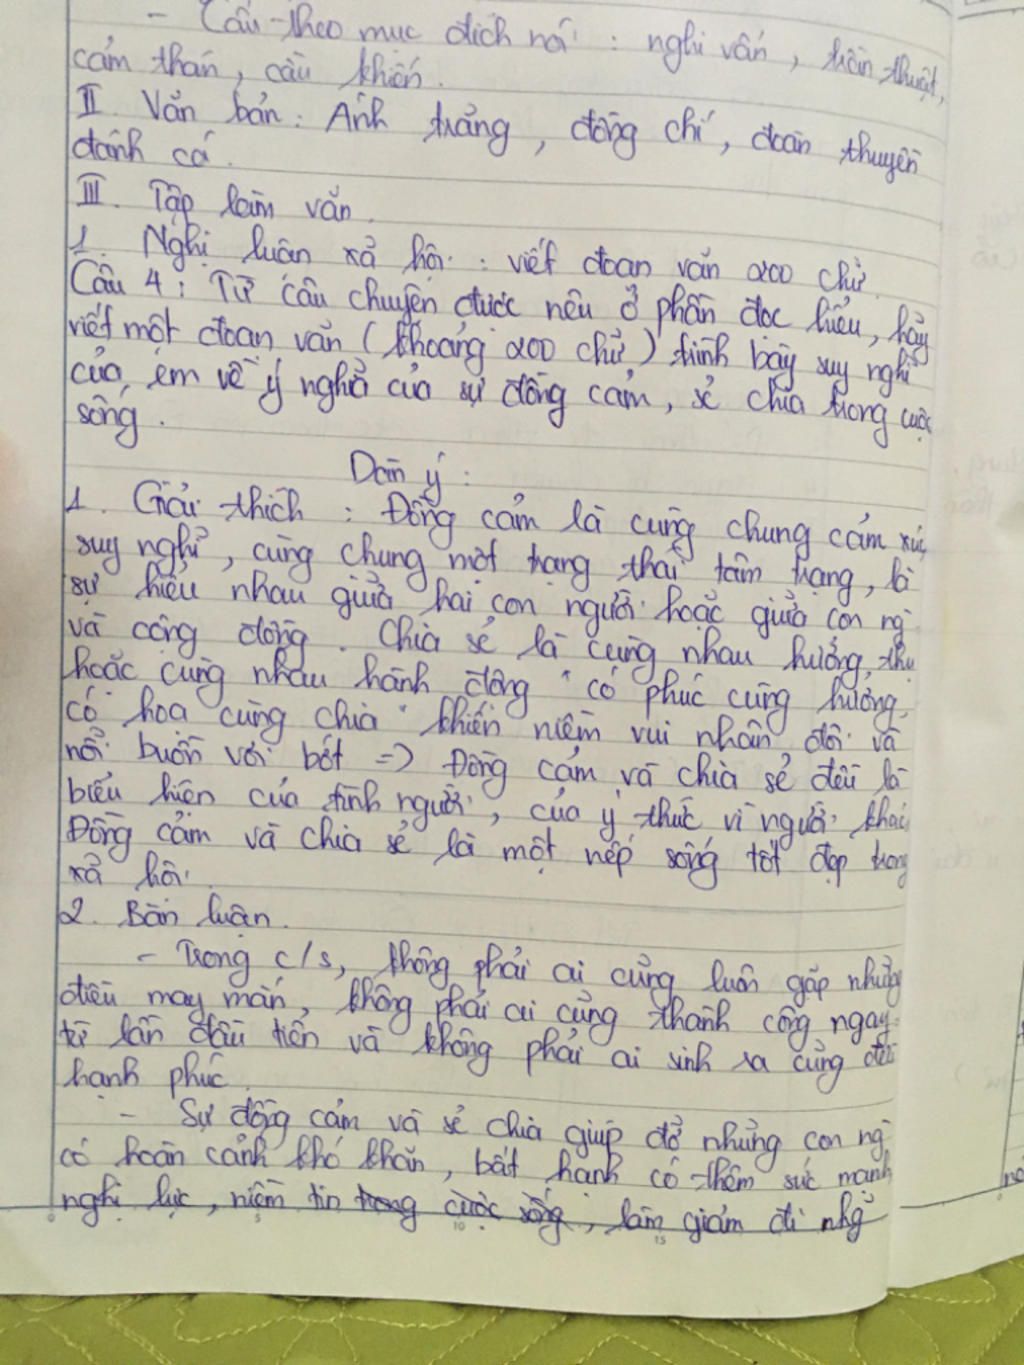 - Câu theo mục đích nói : nghi vấn, trần thuật,
cảm thán, cầu khiến.
II. Văn bản : Ánh trăng, đồng chí, đoàn thuyền
đánh cá.
III. Tập làm văn.
1. Nghị luận xã hội : viết đoạn văn 200 chữ.
Câu 4 : Từ câu chuyện được nêu ở phần đọc hiểu, hãy
viết một đoạn văn (khoảng 200 chữ) trình bày suy nghĩ
của em về ý nghĩa của sự đồng cảm, sẻ chia trong cuộc
sống.
Dàn ý :
1. Giải thích : Đồng cảm là cùng chung cảm xúc,
suy nghĩ, cùng chung một trạng thái tâm trạng, là
sự hiểu nhau giữa hai con người hoặc giữa con ng
và cộng đồng. Chia sẻ là cùng nhau hưởng thụ
hoặc cùng nhau hành động "có phúc cùng hưởng,
có hoạ cùng chia" khiến niềm vui nhân đôi và
nỗi buồn vơi bớt => Đồng cảm và chia sẻ đều là
biểu hiện của tình người, của ý thức vì người khác
Đồng cảm và chia sẻ là một nếp sống tốt đẹp trong
xã hội.
2. Bàn luận.
- Trong c/s, không phải ai cũng luôn gặp những
điều may mắn, không phải ai cũng thành công ngay
từ lần đầu tiên và không phải ai sinh ra cũng đều
hạnh phúc.
- Sự đồng cảm và sẻ chia giúp đỡ những con ng
có hoàn cảnh khó khăn, bất hạnh có thêm sức mạnh
nghị lực, niềm tin trong cuộc sống, làm giảm đi nhg
0 5 10 15